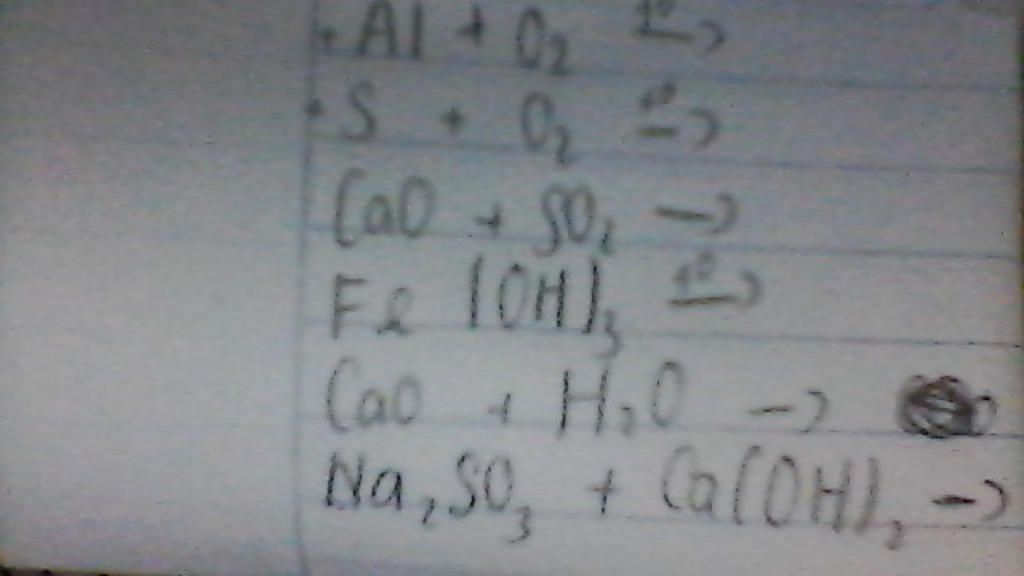 + Al + O₂ t⁰→
+ S + O₂ t⁰→
CaO + SO₂ →
Fe(OH)₃ t⁰→
CaO + H₂O →
Na₂SO₃ + Ca(OH)₂ →